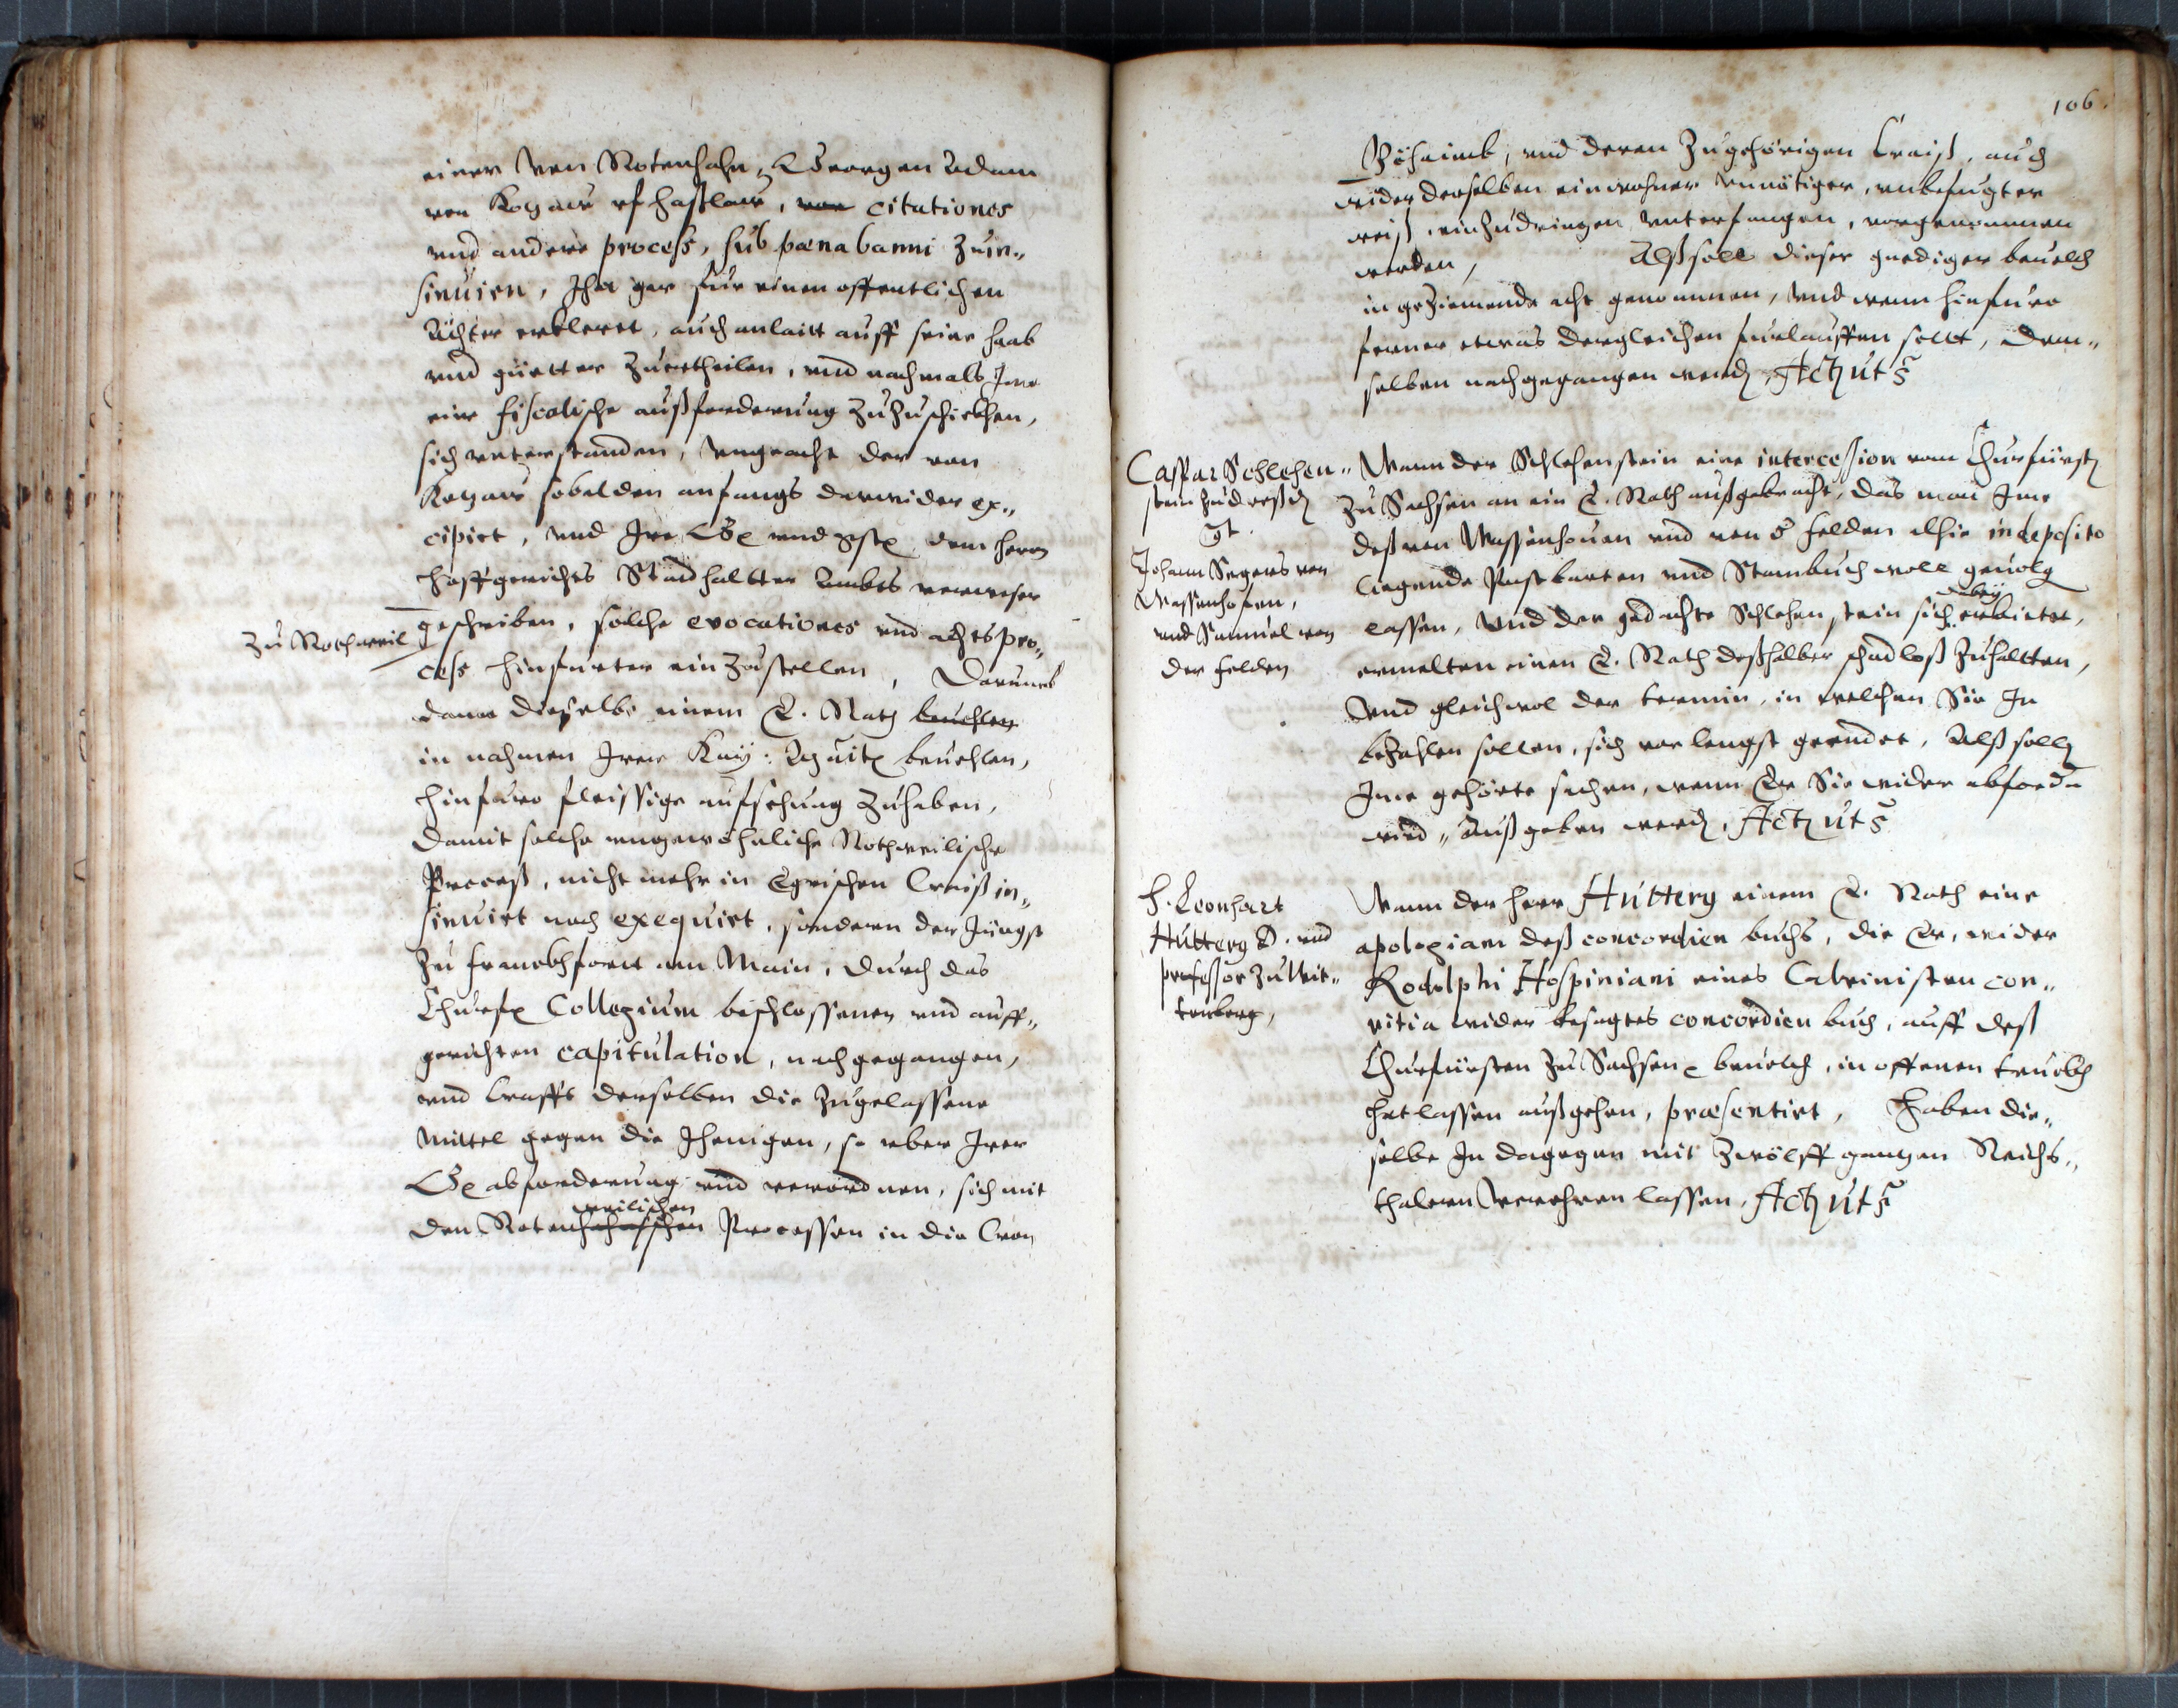 einer von Rotenhahn, Georgen Adam
von Kozaw vf Haßlaw, von citationes
vnd andere process, sub pæna banni zu in„
sinuirn, Ihn gar für einen offentlichen
Ächter erkleret, auch anlaitt auff seine haab
vnd güetter zuertheilen, vnd nachmals Ime
eine fiscalische außforderung zuzuschickhen,
sich vnterstanden, Vngeacht der von
Kozaw sobalden anfangs darwider ex„
cipirt, vnd Ire dem herrn
Hoffgerichts Stadthaltter Ambts verweser
zu Rothweil
geschriben, solche evocationes vnd achtspro„
cess hinfürter einzustellen, Darumb
dann dieselbe einem E. Rath beuehlen
in nahmen Irer Kay: beuehlen,
hinfüro fleissige aufsehung zuhaben,
damit solche vngewöhnliche Rothweilische
Process, nicht mehr in Egrischen Craiß in„
sinuirt noch exequirt, sonderen der Jüngst
zu Franckhfort am Main, durch das
Churf. Collegium beschlossenen vnd auff„
gerichten capitulation, nachgegangen,
vnd Craffts derselben die zugelassene
mittel gegen die Jhenigen, so vber Irer
abforderung vnd verordnen, sich mit
weilischen
den Rotenhahnschen Processen in die Cron
106.
Böhaimb, vnd deren zugehörigen Craiß, auch
wider derselben einwohner vnnötiger, vnbefugter
weiß, einzudringen vnterfangen, vorgenommen
werden, Alß soll dieser gnediger beuelch
in geziemende acht genommen, vnd wenn hinfüro
ferner etwas dergleichen fürlauffen sollt, dem„
selben nachgegangen werden,
Caspar Schlehen„
stein
Johann Segers von
Wassenhofen,
vnd Samuel von
der Felden
Wann der Schlehenstein eine intercession vom Churfürsten
zu Sachsen an ein E. Rath außgebracht, das man Ime
deß von Wassenhouen vnd von d. Felden alhie in deposito
liegende vnd Stambuch woll geuolg
dabey
lassen, Vnd der gedachte Schlehenstein sich erbietet,
ermelten einen E. Rath deßhalber schadloß zuhaltten,
Vnd gleichwol der termin, in welchen Sie In
bezahlen sollen, sich vorlengst geendet, Alß sollen
Ime gehörte sachen, wenn Er Sie wider abfordern
wird, außgeben werden,
H. Leonhart
Hutterg D. vnd
professor zu Wit„
tenberg,
Wann der Herr Hutterg einem E. Rath eine
apologiam deß concordien buchs, die Er, wider
Rodolphi Hospiniani eines Calvinisten con„
vitia wider besagtes concordien buch, auff deß
Churfürsten zu Sachsen beuelch, in offenen truckh
hat lassen außgehen, præsentirt, Haben die„
selbe In dagegen mit zwölff gantzen Reichs„
thalern verehren lassen,